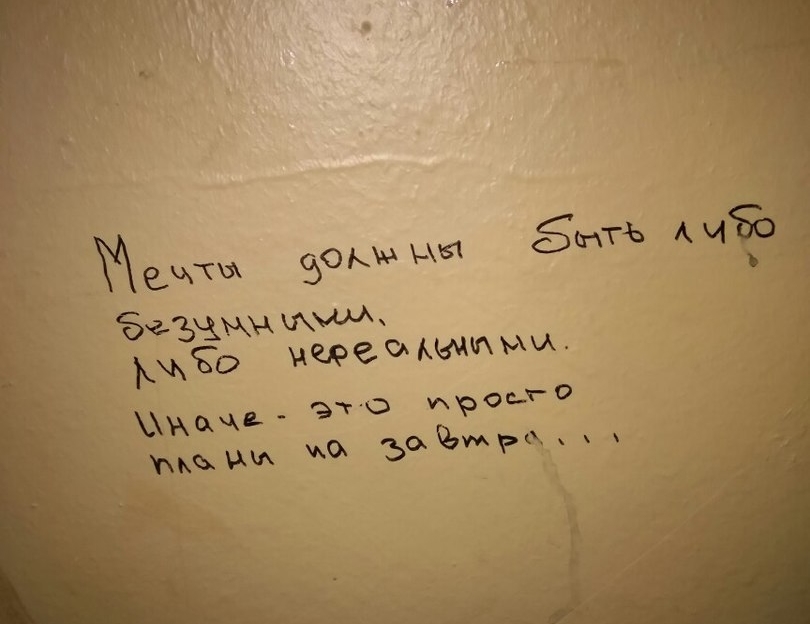 Мечты должны быть либо
безумными,
либо нереальными.
Иначе - это просто
планы на завтра...